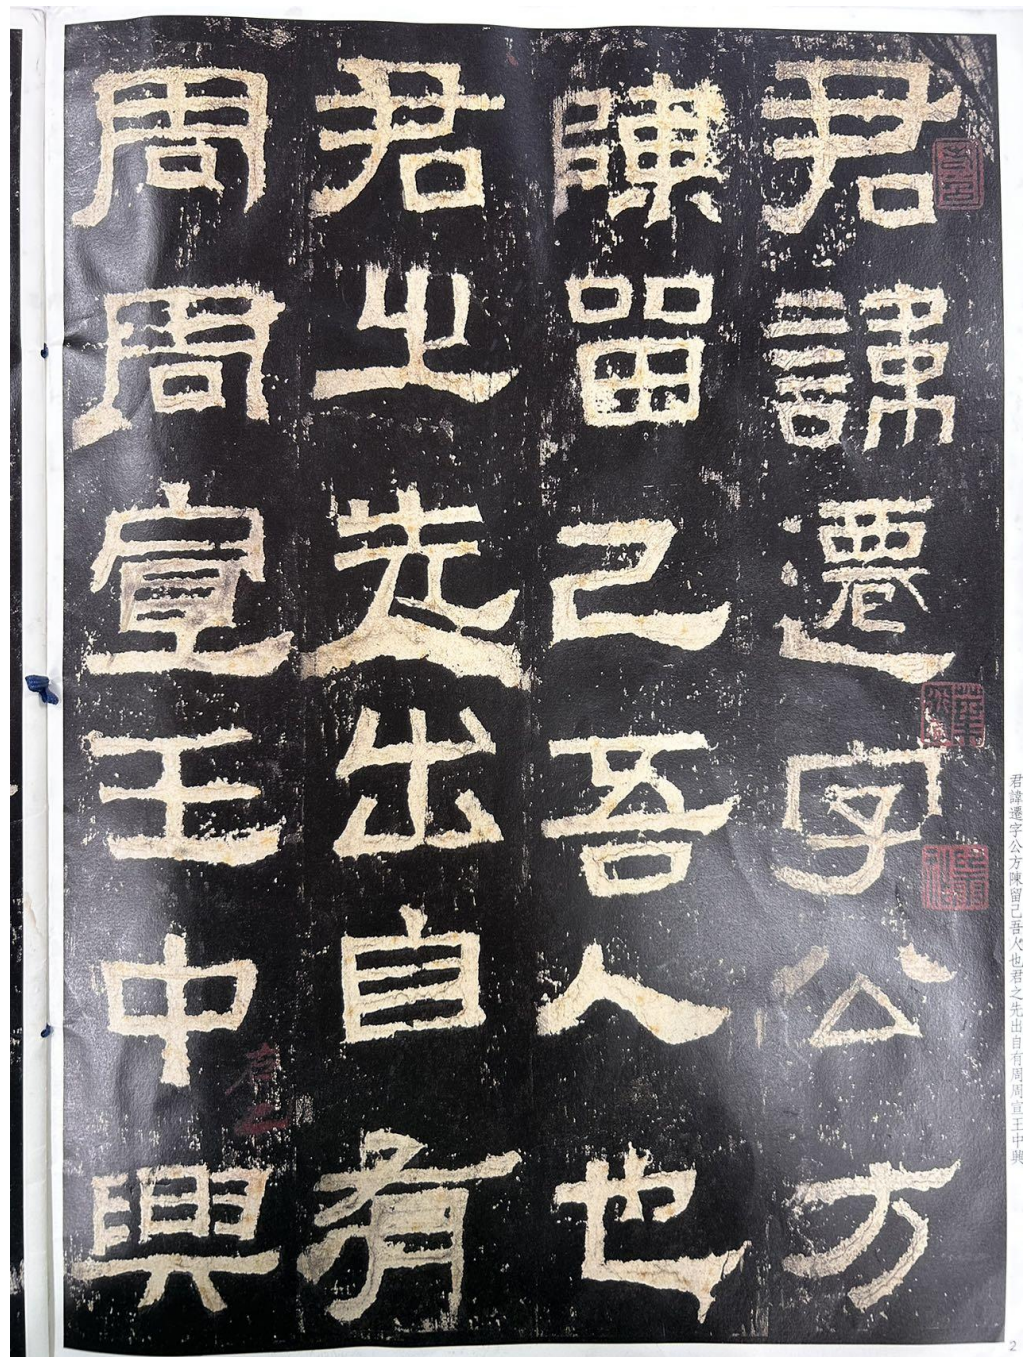 君諱遷字公方
陳留己吾人也
君之先出自有
周周宣王中興
君諱遷字公方陳留己吾人也君之先出自有周周宣王中興
2